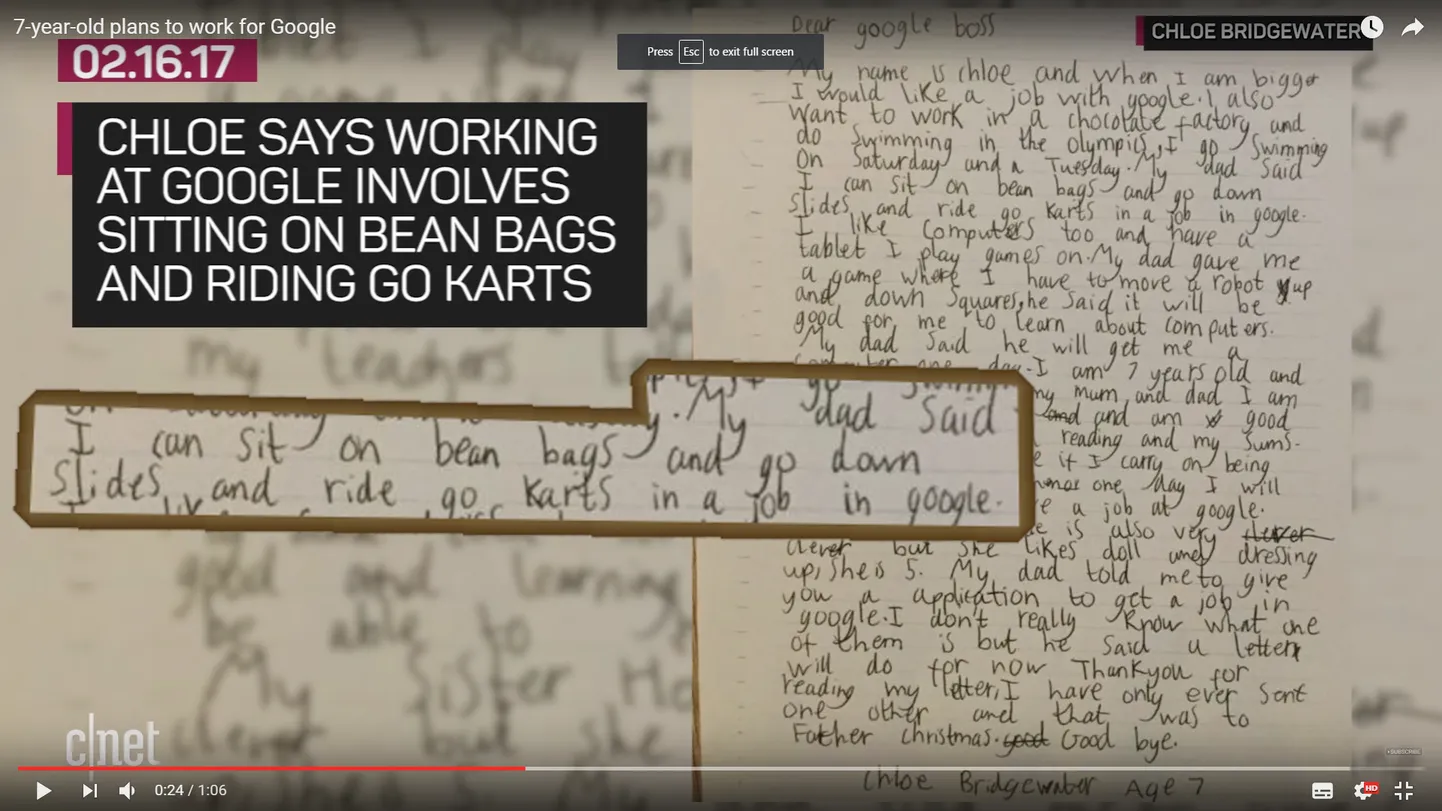 7-year-old plans to work for Google
02.16.17
Press Esc to exit full screen
CHLOE BRIDGEWATER
CHLOE SAYS WORKING
AT GOOGLE INVOLVES
SITTING ON BEAN BAGS
AND RIDING GO KARTS
my teachers
My dad said
I can sit on bean bags and go down
Slides and ride go karts in a job in google.
good and learning
be able to
My Sister
clever but she
Dear google boss
My name is chloe and when I am bigger
I would like a job with google. I also
want to work in a chocolate factory and
do Swimming in the olympics, I go Swimming
on Saturday and a Tuesday. My dad said
I can sit on bean bags and go down
slides and ride go karts in a job in google.
I like computers too and have a
tablet I play games on. My dad gave me
a game where I have to move a robot up
and down squares, he said it will be
good for me to learn about computers.
My dad said he will get me a
day. I am 7 years old and
my mum and dad I am
and and am good
reading and my sums.
if I carry on being
one day I will
a job at google.
is also very clever
clever but she likes doll and dressing
up, she is 5. My dad told me to give
you a application to get a job in
google. I don't really know what one
of them is but he said a letter
will do for now Thankyou for
reading my letter, I have only ever sent
one other and that was to
Father christmas. good Good bye.
Chloe Bridgewater Age 7
c|net
0:24 / 1:06
HD